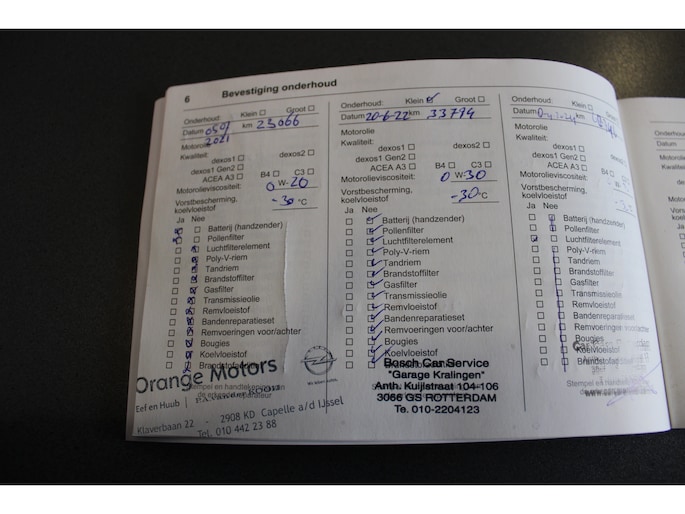 6 Bevestiging onderhoud
Onderhoud: Klein Groot
Datum 2021 km 23066
Motorolie
Kwaliteit:
dexos1 dexos2
dexos1 Gen2
ACEA A3 B4 C3
Motorolieviscositeit:
0 W-20
Vorstbescherming,
koelvloeistof -30 °C
Ja Nee
Batterij (handzender)
Pollenfilter
Luchtfilterelement
Poly-V-riem
Tandriem
Brandstoffilter
Gasfilter
Transmissieolie
Remvloeistof
Bandenreparatieset
Remvoeringen voor/achter
Bougies
Koelvloeistof
Orange Motors
Stempel en handtekening
Eef en Huub
Klaverbaan 22 - 2908 KD Capelle a/d IJssel
Tel. 010 442 23 88
Onderhoud: Klein Groot
Datum 20-6-22 km 33794
Motorolie
Kwaliteit:
dexos1 dexos2
dexos1 Gen2
ACEA A3 B4 C3
Motorolieviscositeit: 0 W-30
Vorstbescherming,
koelvloeistof -30 °C
Ja Nee
Batterij (handzender)
Pollenfilter
Luchtfilterelement
Poly-V-riem
Tandriem
Brandstoffilter
Gasfilter
Transmissieolie
Remvloeistof
Bandenreparatieset
Remvoeringen voor/achter
Bougies
Koelvloeistof
Bosch Car Service
"Garage Kralingen"
Anth. Kuijlstraat 104-106
3066 GS ROTTERDAM
Te. 010-2204123
Onderhoud: Klein Groot
Datum km
Motorolie
Kwaliteit:
dexos1 dexos2
dexos1 Gen2
ACEA A3 B4 C3
Motorolieviscositeit:
Vorstbescherming,
koelvloeistof
Ja Nee
Batterij (handzender)
Pollenfilter
Luchtfilterelement
Poly-V-riem
Tandriem
Brandstoffilter
Gasfilter
Transmissieolie
Remvloeistof
Bandenreparatieset
Remvoeringen voor/achter
Bougies
Koelvloeistof
Stempel en
Onderhoud:
Datum
Motorolie
Kwaliteit: